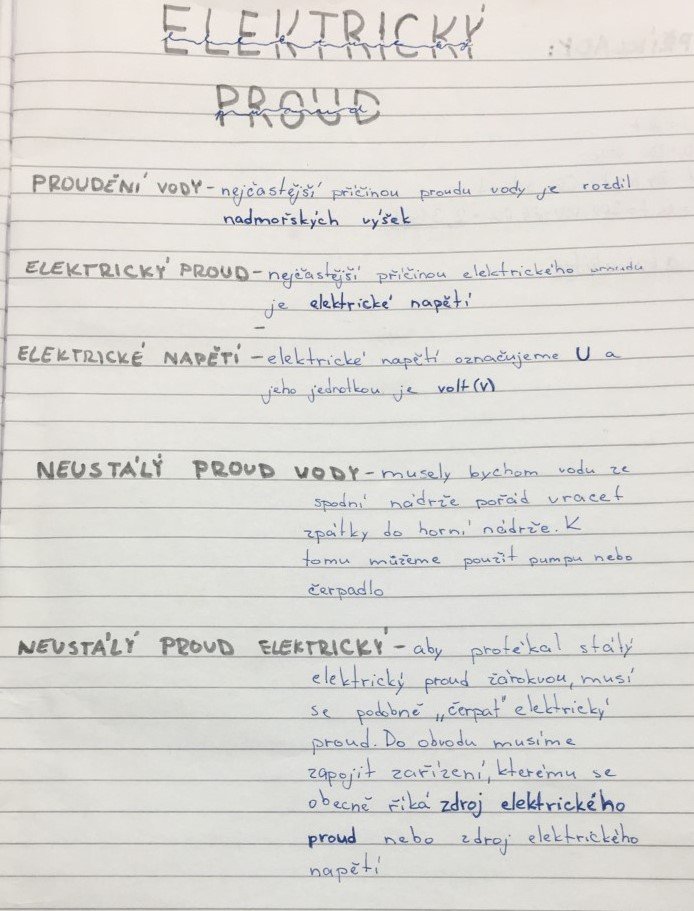 ELEKTRICKÝ
PROUD
PROUDĚNÍ VODY - nejčastější příčinou proudu vody je rozdíl
nadmořských výšek
ELEKTRICKÝ PROUD - nejčastější příčinou elektrického proudu
je elektrické napětí
ELEKTRICKÉ NAPĚTÍ - elektrické napětí označujeme U a
jeho jednotkou je volt (V)
NEUSTÁLÝ PROUD VODY - musely bychom vodu ze
spodní nádrže pořád vracet
zpátky do horní nádrže. K
tomu můžeme použít pumpu nebo
čerpadlo
NEUSTÁLÝ PROUD ELEKTRICKÝ - aby protékal stálý
elektrický proud žárokvou, musí
se podobně „čerpat" elektrický
proud. Do obvodu musíme
zapojit zařízení, kterému se
obecně říká zdroj elektrického
proud nebo zdroj elektrického
napětí